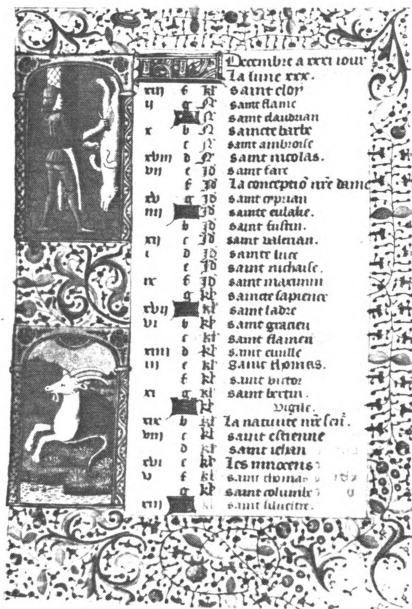 Decembre a xxxi iour
La lune xxx.
xiii f kl saint eloy
ij g N saint flame
N saint claudrian
x b N saincte barbe
c N saint ambroise
xviii d N saint nicolas.
vii e Jd saint fare
f La conceptio nre dame
xv g Jd saint cyprian
iiii Jd sainte eulalie.
b Jd saint fustin.
xii c Jd saint valerian.
i d Jd sainte luce
e Jd saint nichaise.
ix f Jd saint maximin
g kl saincte sapience
xvij kl saint ladre
vi b kl saint gracien
c kl saint flamen
xiiii d kl saint
iii e kl saint thomas.
f kl saint victor
xi g kl saint bertin.
kl Vigile.
xix b kl La nativite nre
viii c kl saint estienne
d kl saint iehan
xvi e kl Les innocens
v f kl saint thomas
g kl saint columbe
xiii kl saint silvestre.